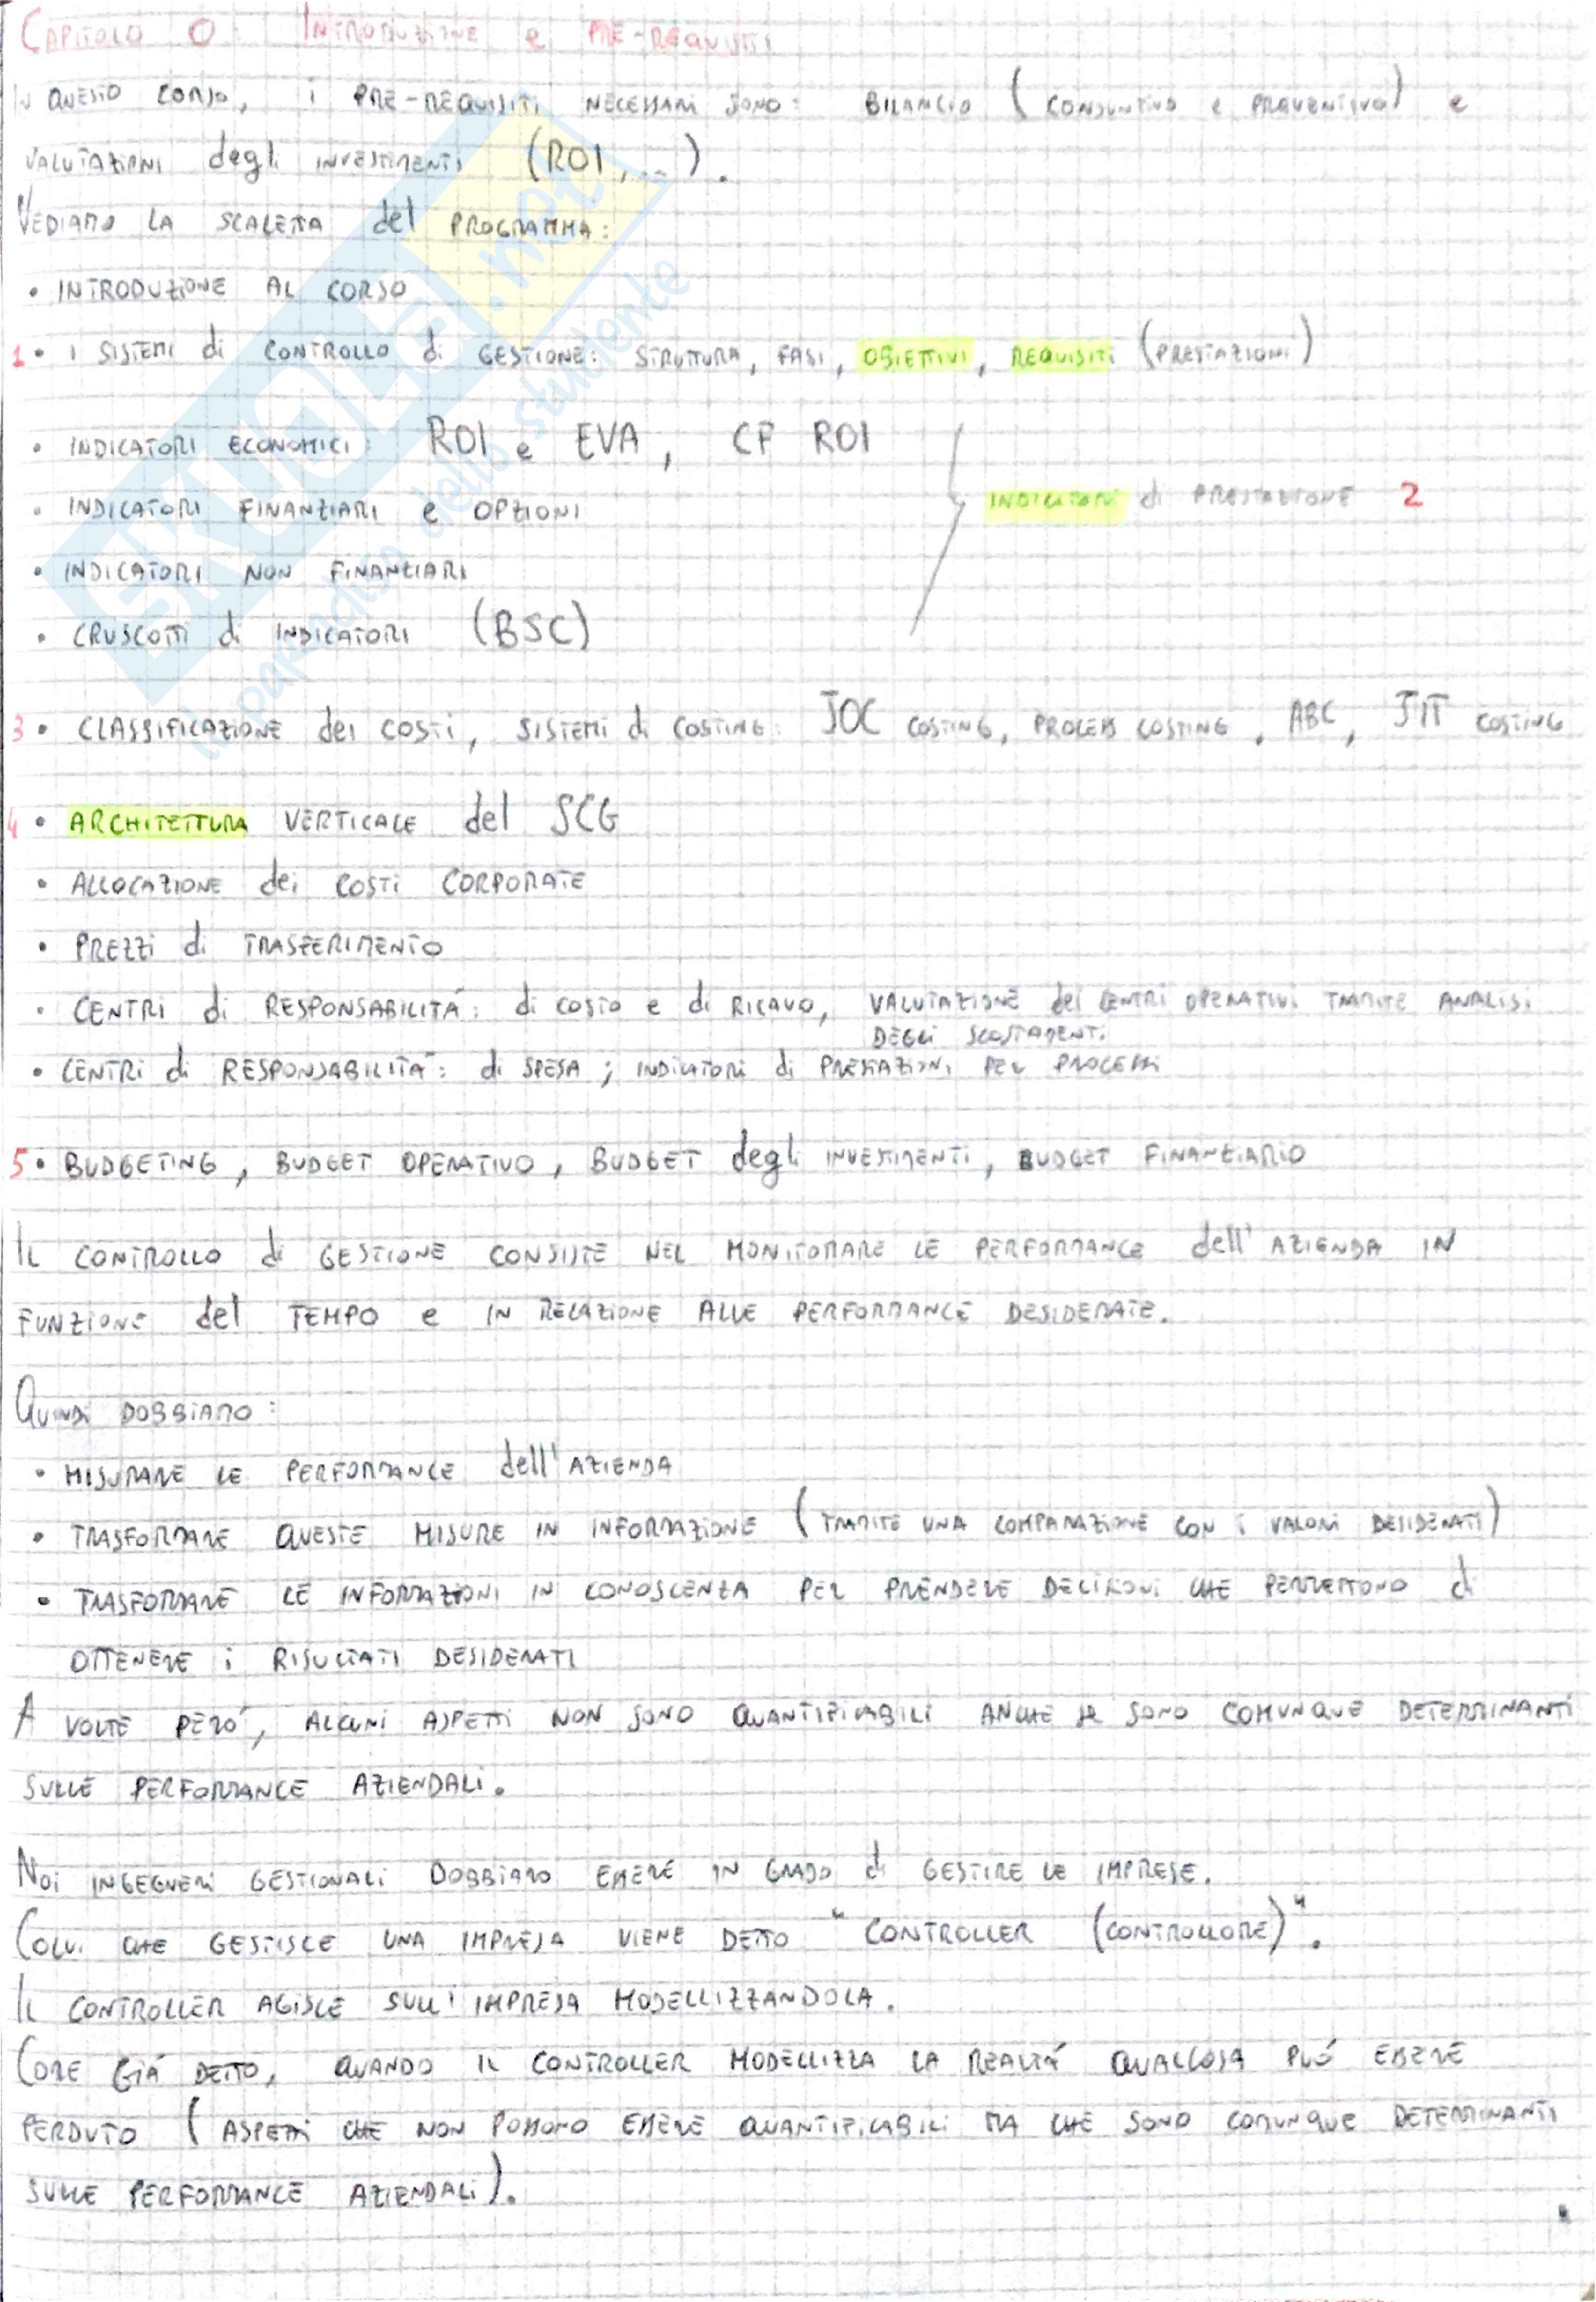 CAPITOLO 0: INTRODUZIONE e PRE-REQUISITI
IN QUESTO CORSO, i PRE-REQUISITI NECESSARI SONO: BILANCIO (CONSUNTIVO e PREVENTIVO) e
VALUTAZIONI degli INVESTIMENTI (ROI, ...).
VEDIAMO LA SCALETTA del PROGRAMMA:
• INTRODUZIONE AL CORSO
1 • I SISTEMI di CONTROLLO di GESTIONE: STRUTTURA, FASI, OBIETTIVI, REQUISITI (PRESTAZIONI)
• INDICATORI ECONOMICI: ROI e EVA, CF ROI
INDICATORI di PRESTAZIONE 2
• INDICATORI FINANZIARI e OPZIONI
• INDICATORI NON FINANZIARI
• CRUSCOTTI di INDICATORI (BSC)
3 • CLASSIFICAZIONE dei COSTI, SISTEMI di COSTING: JOC COSTING, PROCESS COSTING, ABC, JIT COSTING
4 • ARCHITETTURA VERTICALE del SCG
• ALLOCAZIONE dei COSTI CORPORATE
• PREZZI di TRASFERIMENTO
• CENTRI di RESPONSABILITÁ: di COSTO e di RICAVO, VALUTAZIONE dei CENTRI OPERATIVI TRAMITE ANALISI
DEGLI SCOSTAMENTI.
• CENTRI di RESPONSABILITÁ: di SPESA; INDICATORI di PRESTAZIONI PER PROCESSI
5 • BUDGETING, BUDGET OPERATIVO, BUDGET degli INVESTIMENTI, BUDGET FINANZIARIO
IL CONTROLLO di GESTIONE CONSISTE NEL MONITORARE LE PERFORMANCE dell'AZIENDA IN
FUNZIONE del TEMPO e IN RELAZIONE ALLE PERFORMANCE DESIDERATE.
QUINDI DOBBIAMO:
• MISURARE LE PERFORMANCE dell'AZIENDA
• TRASFORMARE QUESTE MISURE IN INFORMAZIONE (TRAMITE UNA COMPARAZIONE CON I VALORI DESIDERATI)
• TRASFORMARE LE INFORMAZIONI IN CONOSCENZA PER PRENDERE DECISIONI CHE PERMETTONO di
OTTENERE i RISULTATI DESIDERATI
A VOLTE PERÓ, ALCUNI ASPETTI NON SONO QUANTIFICABILI ANCHE SE SONO COMUNQUE DETERMINANTI
SULLE PERFORMANCE AZIENDALI.
NOI INGEGNERI GESTIONALI DOBBIAMO ESSERE IN GRADO di GESTIRE LE IMPRESE.
COLUI CHE GESTISCE UNA IMPRESA VIENE DETTO "CONTROLLER (CONTROLLORE)".
IL CONTROLLER AGISCE SULL'IMPRESA MODELLIZZANDOLA.
COME GIÁ DETTO, QUANDO IL CONTROLLER MODELLIZZA LA REALTÁ QUALCOSA PUÓ ESSERE
PERDUTO (ASPETTI CHE NON POSSONO ESSERE QUANTIFICABILI MA CHE SONO COMUNQUE DETERMINANTI
SULLE PERFORMANCE AZIENDALI).
SKUOLA.net
il paradiso dello studente